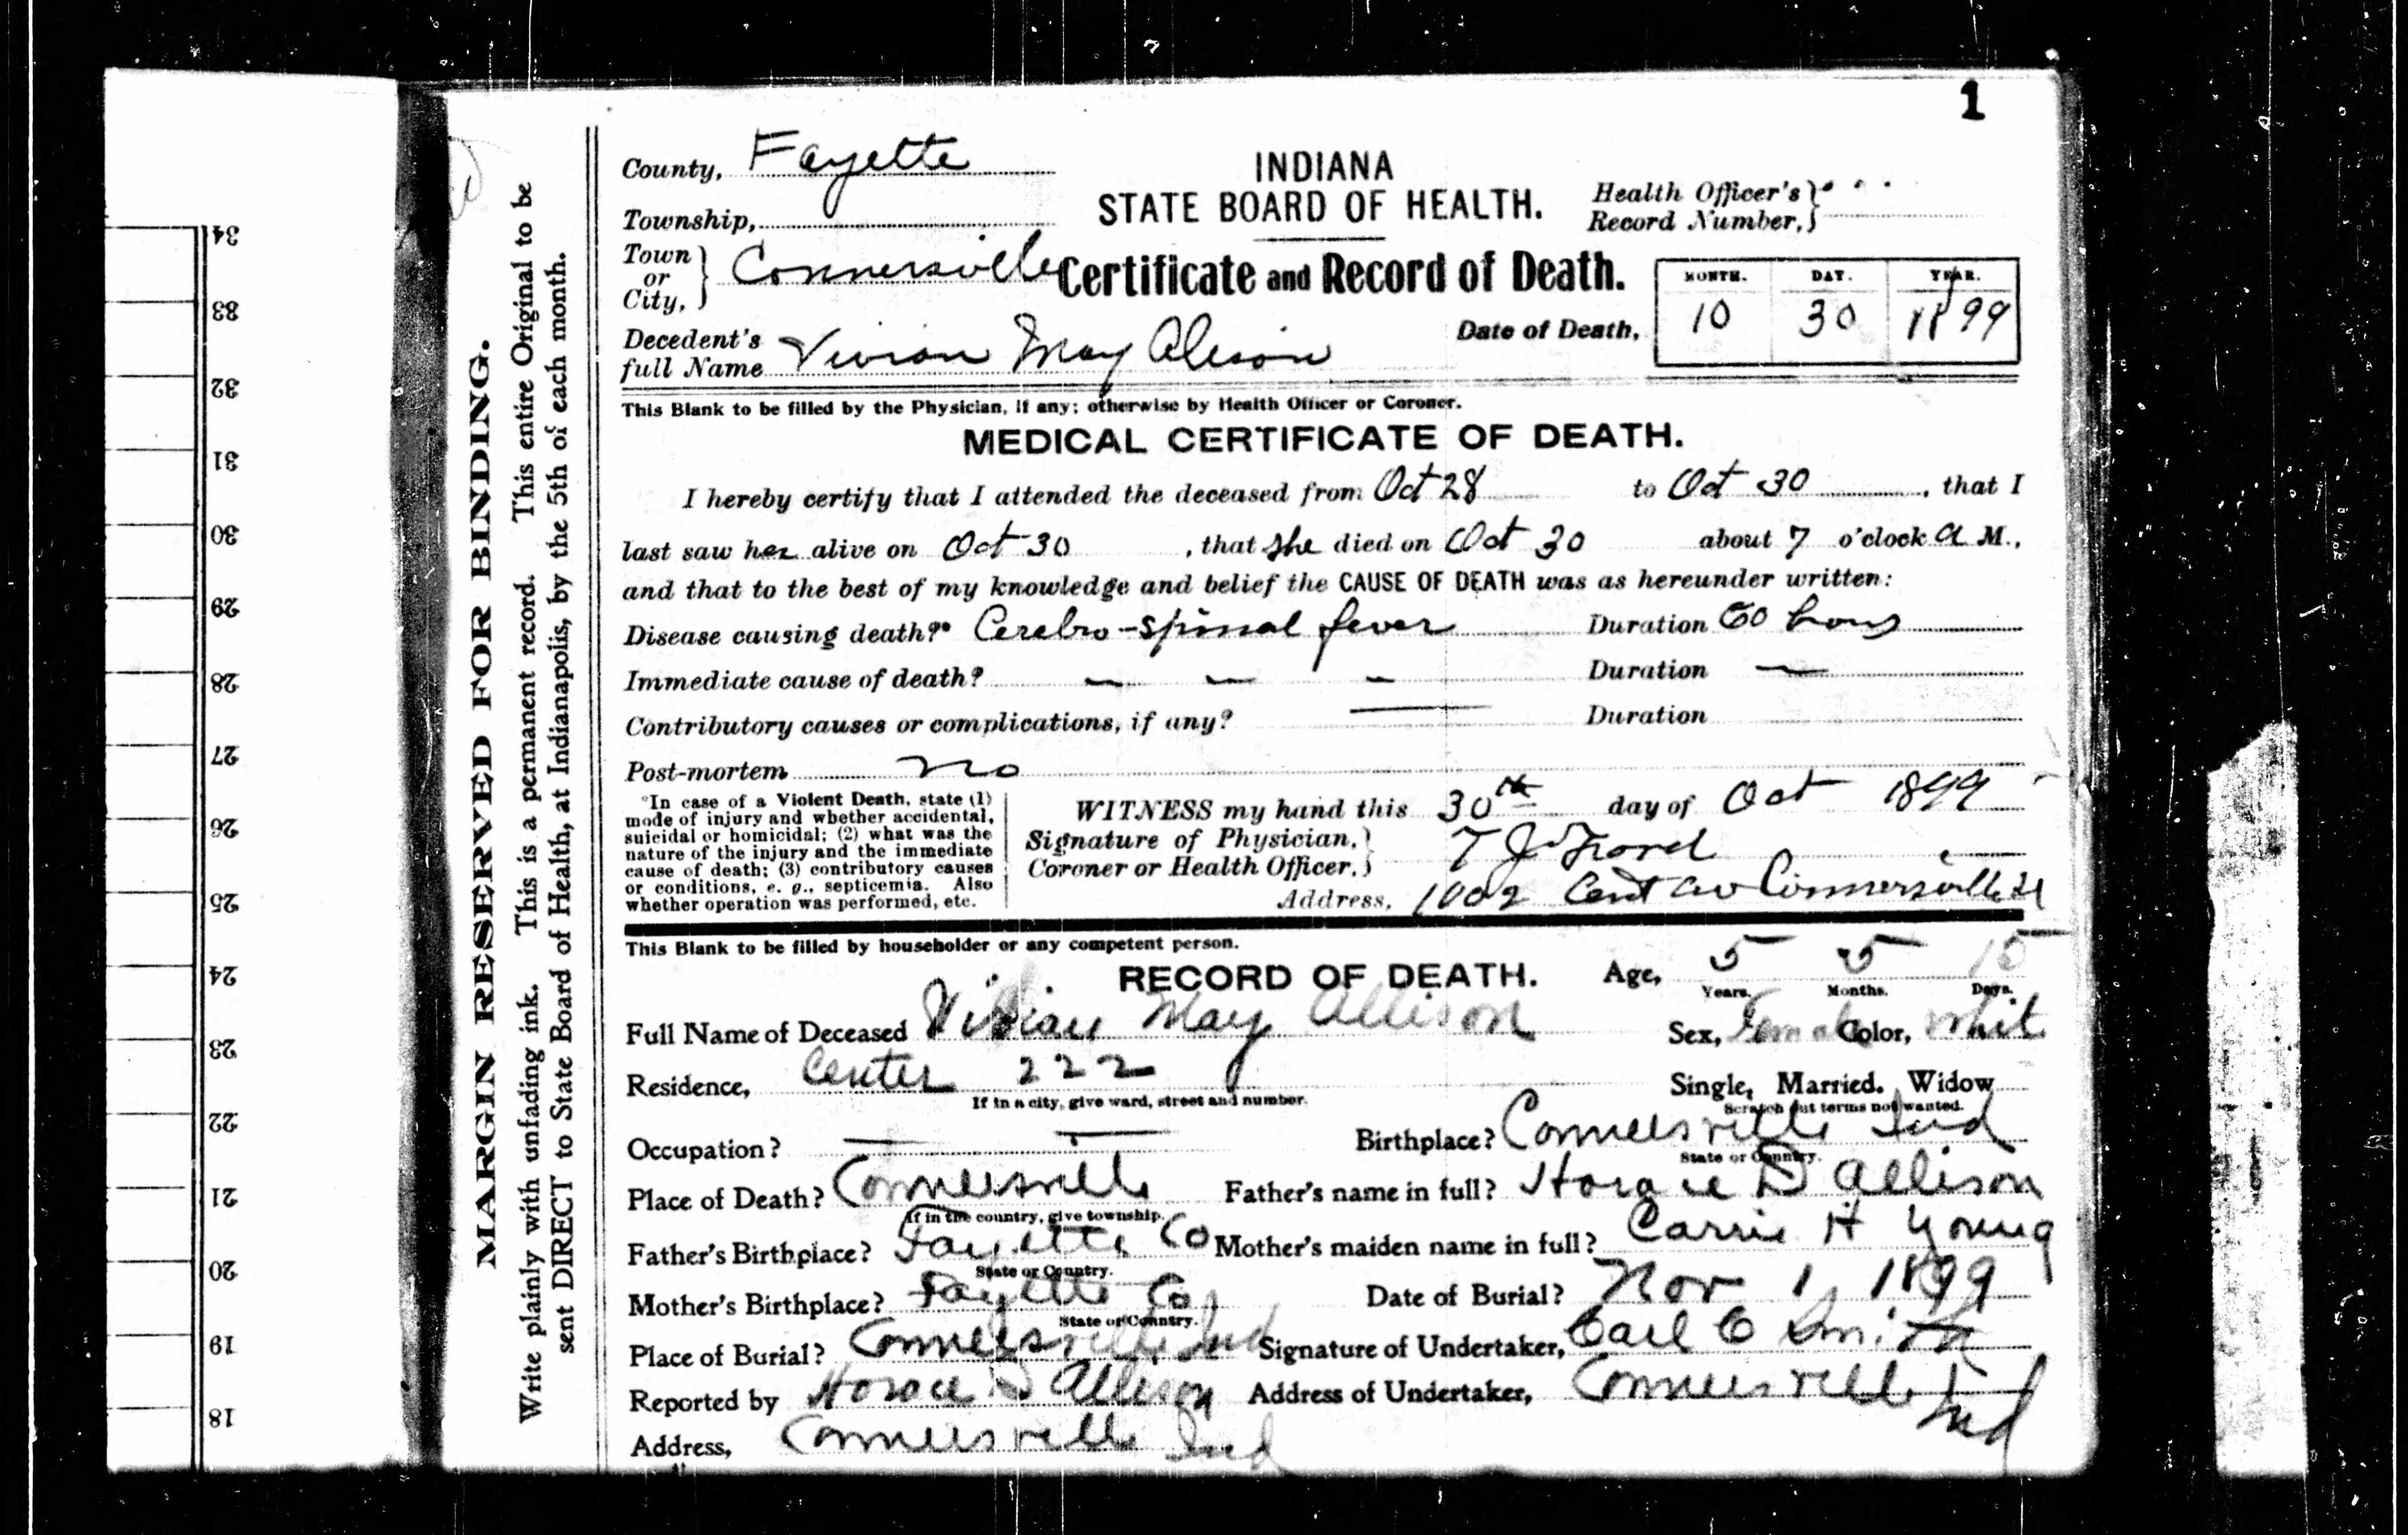 1
County, Fayette
INDIANA
STATE BOARD OF HEALTH.
Health Officer's
Record Number,
Township,
Town or City, Connersville
Certificate and Record of Death.
MONTH. DAY. YEAR.
Date of Death, 10 30 1899
Decedent's full Name Vivian May Alison
This Blank to be filled by the Physician, if any; otherwise by Health Officer or Coroner.
MEDICAL CERTIFICATE OF DEATH.
I hereby certify that I attended the deceased from Oct 28 to Oct 30, that I
last saw her alive on Oct 30, that she died on Oct 30 about 7 o'clock A M.,
and that to the best of my knowledge and belief the CAUSE OF DEATH was as hereunder written:
Disease causing death?* Cerebro-spinal fever Duration 60 hours
Immediate cause of death? — — — Duration —
Contributory causes or complications, if any? — Duration
Post-mortem no
*In case of a Violent Death, state (1)
mode of injury and whether accidental,
suicidal or homicidal; (2) what was the
nature of the injury and the immediate
cause of death; (3) contributory causes
or conditions, e. g., septicemia. Also
whether operation was performed, etc.
WITNESS my hand this 30th day of Oct 1899
Signature of Physician,
Coroner or Health Officer, T J Ford
Address, 1002 Cent av Connersville
This Blank to be filled by householder or any competent person.
RECORD OF DEATH.
Age, 5 5 15
Years. Months. Days.
Full Name of Deceased Vivian May Allison
Sex, Female Color, Whit
Residence, Center 222
If in a city, give ward, street and number.
Single, Married, Widow
Scratch out terms not wanted.
Occupation? — —
Birthplace? Connersville Ind
State or Country.
Place of Death? Connersville
If in the country, give township.
Father's name in full? Horace D Allison
Father's Birthplace? Fayette Co
State or Country.
Mother's maiden name in full? Carrie H Young
Mother's Birthplace? Fayette Co
State or Country.
Date of Burial? Nov 1, 1899
Place of Burial? Connersville Ind
Signature of Undertaker, Carl C Smith
Reported by Horace D Allison
Address of Undertaker, Connersville Ind
Address, Connersville Ind
MARGIN RESERVED FOR BINDING.
Write plainly with unfading ink. This is a permanent record. This entire Original to be
sent DIRECT to State Board of Health, at Indianapolis, by the 5th of each month.
34
33
32
31
30
29
28
27
26
25
24
23
22
21
20
19
18